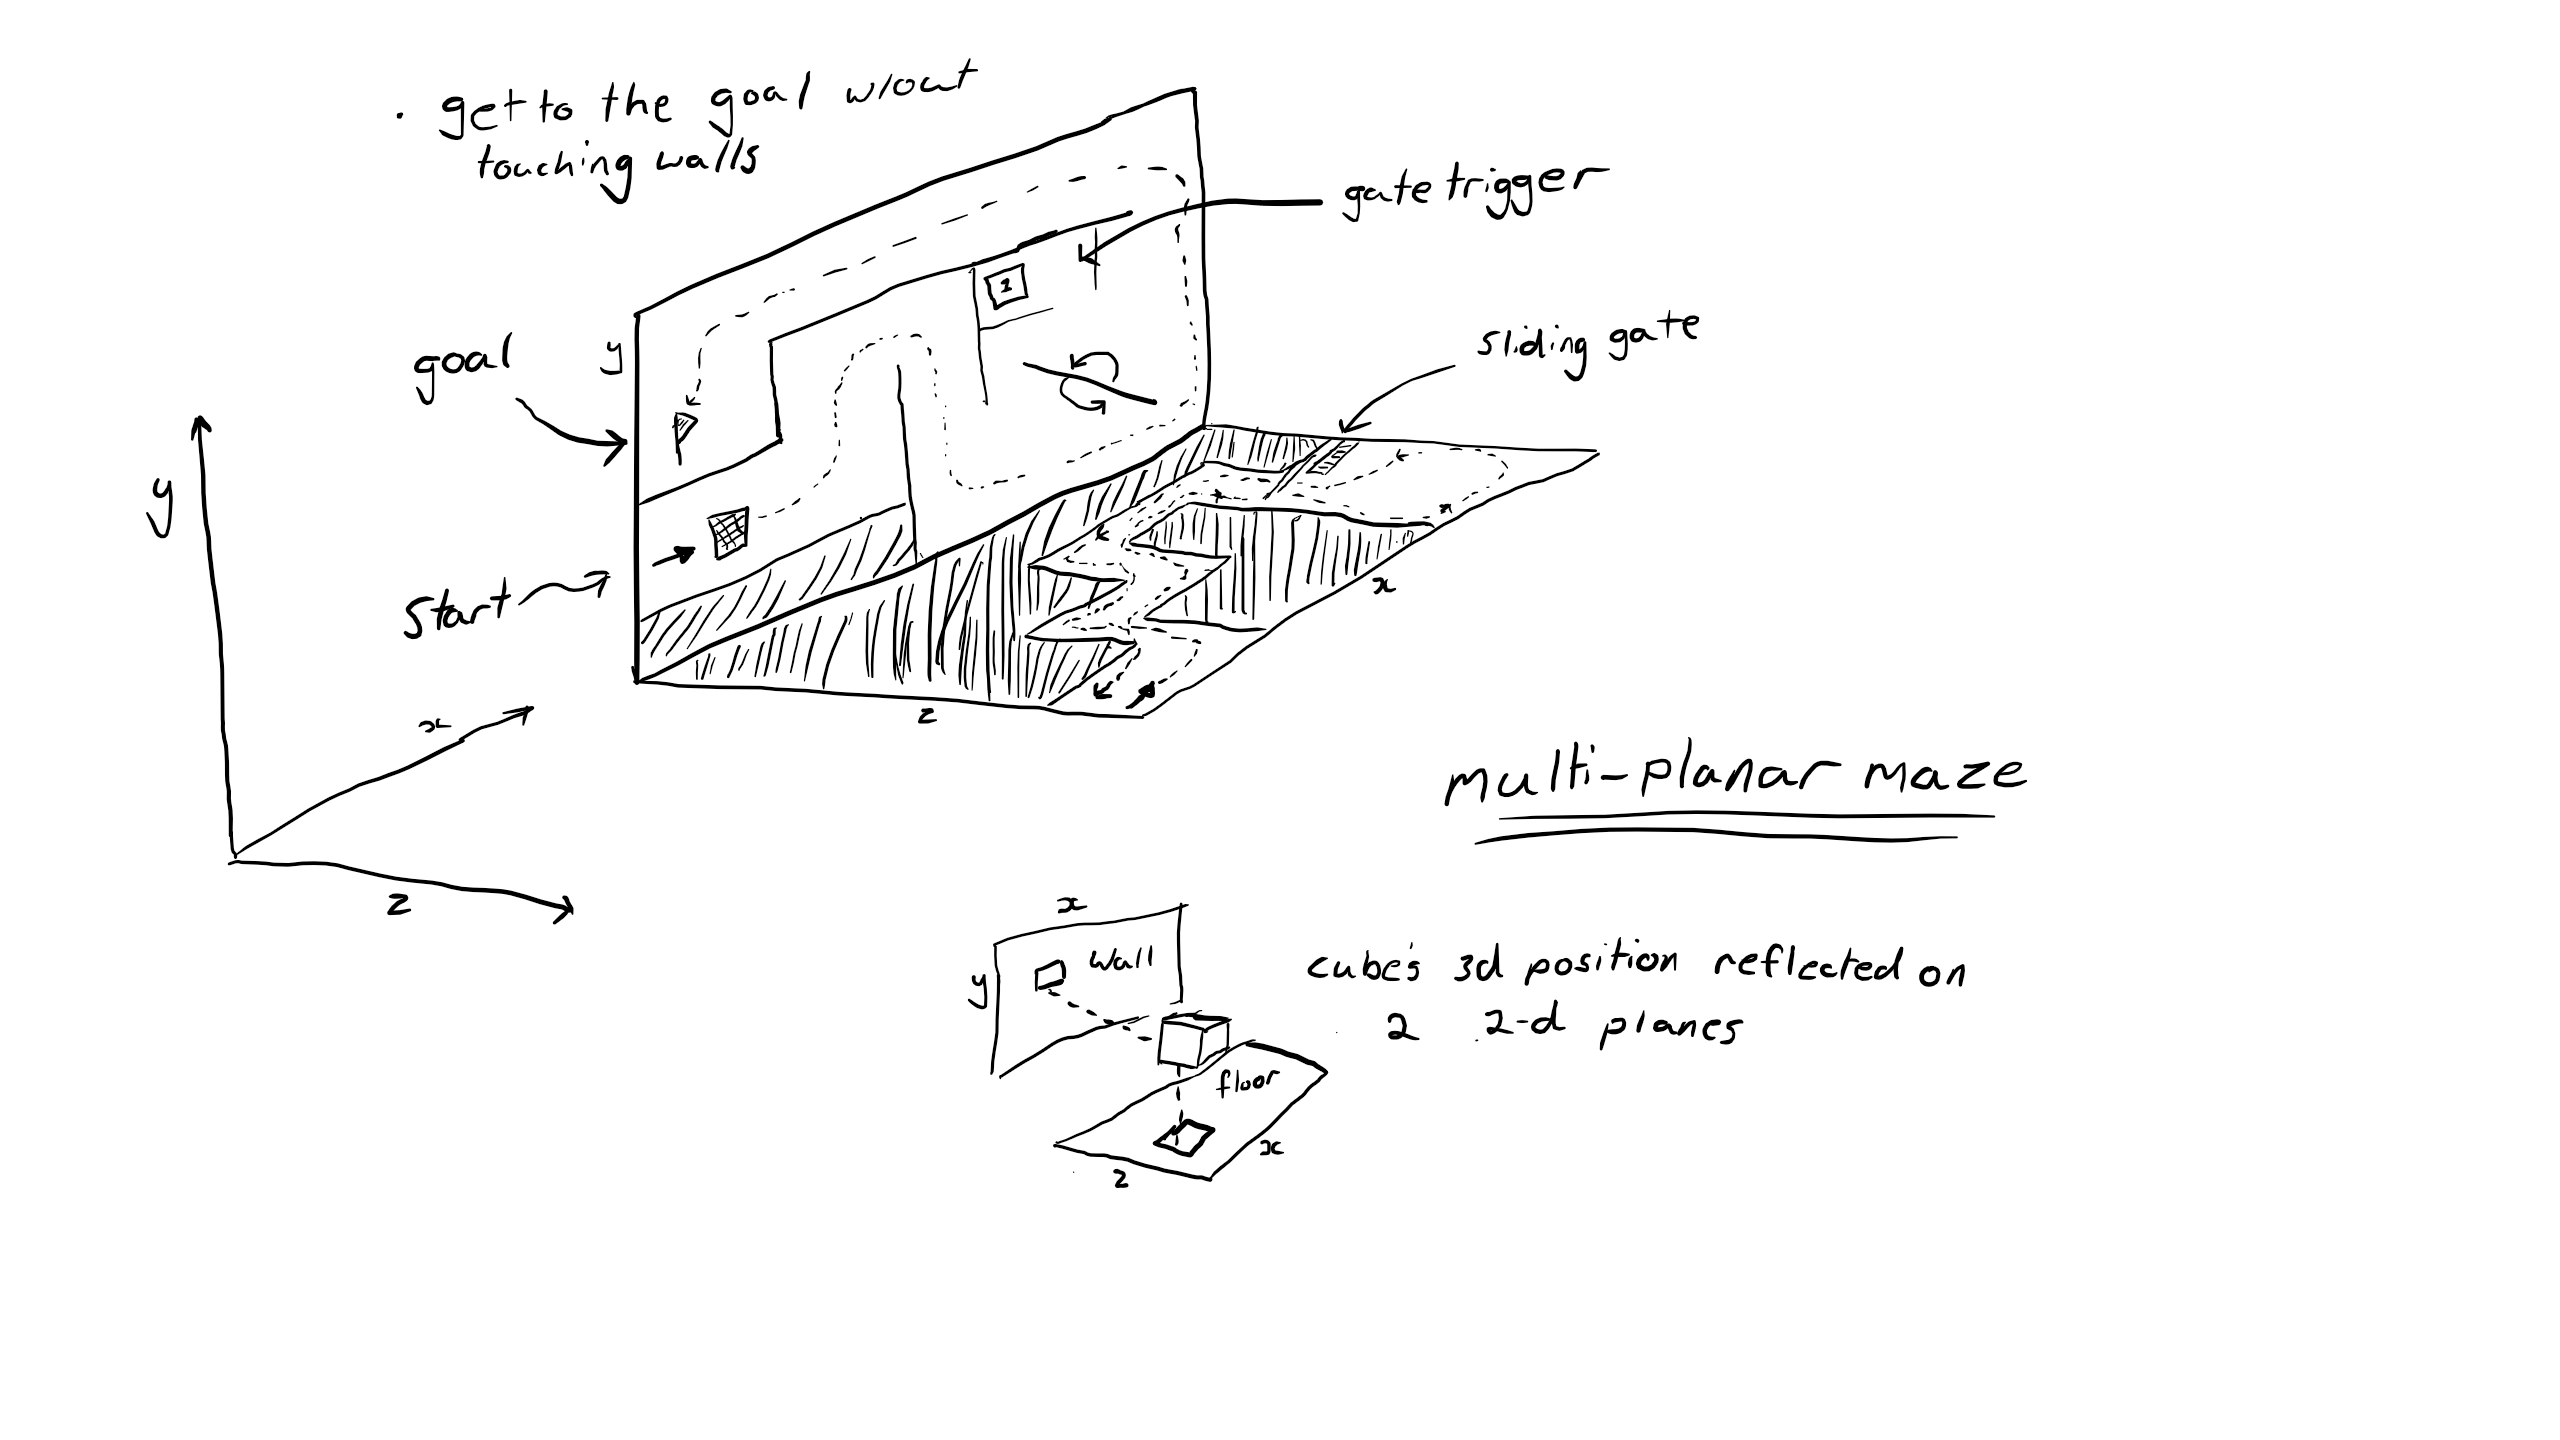 · get to the goal w/out
touching walls
gate trigger
1
sliding gate
goal
y
y
start
x
x
z
z
multi-planar maze
x
wall
y
cube's 3d position reflected on
2 2-d planes
floor
x
z